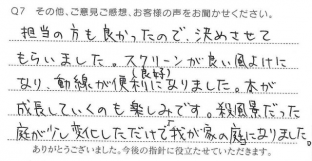 Q7 その他、ご意見ご感想、お客様の声をお聞かせください。
担当の方も良かったので、決めさせて
もらいました。スクリーンが良い風よけに
なり、動線が便利(良好)になりました。木が
成長していくのも楽しみです。殺風景だった
庭が少し変化しただけで「我が家の庭」になりました。
ありがとうございました。今後の指針に役立たせていただきます。